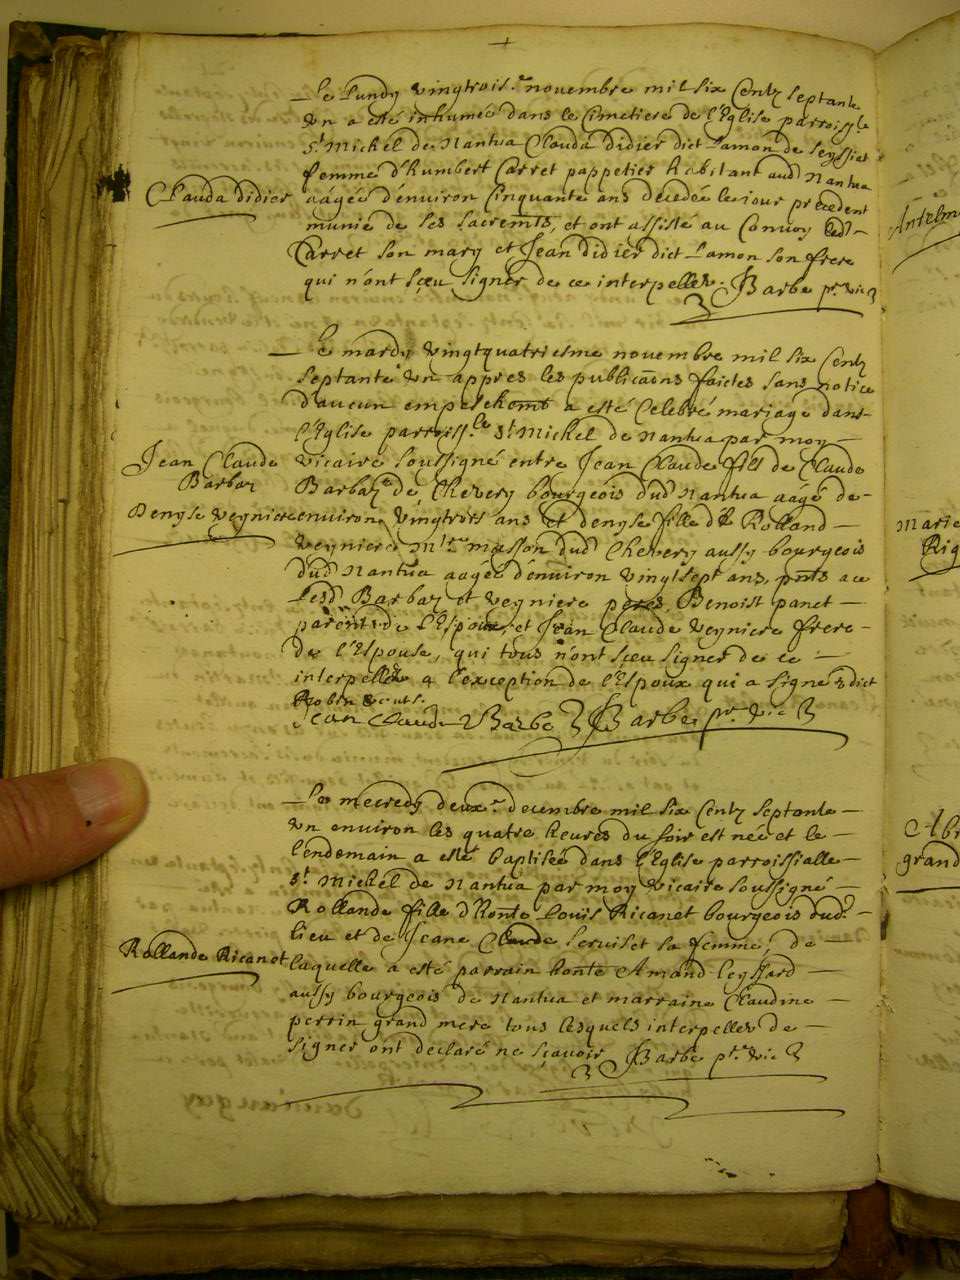 Le Lundy vingtrois.e novembre mil six Centz septante
un a esté inhumée dans le Cimetiere de l'Eglise parroiss.le
St Michel de Nantua Clauda Didier dict Lamon de Leyssiat
femme d'Humbert Carret pappetier habitant aud Nantua
Clauda Didier
aagée d'environ Cinquante ans decedée le iour precedent
munie de ses sacremts, et ont assisté au Convoy led
Carret son mary et Jean Didier dict Lamon son frere
qui n'ont sçeu signer de ce interpellez. Barbe ptre vic
Le mardy vingtquatriesme novembre mil six Centz
septante un appres les publicaons faictes sans notice
d'aucun empeschemt a esté Celebré mariage dans
l'Eglise parroiss.le St Michel de Nantua par moy
Jean Claude
Barbaz
vicaire soussigné entre Jean Claude fils de Claude
Barbaz de Chevery bourgeois dud Nantua aagé de
Denyse Veyniere
environ vingtrois ans et denyse fille d' Rolland
Veyniere Mtre masson dud Chevery aussy bourgeois
dud Nantua aagée d'environ vingtsept ans, pnts a ce
Lesd Barbaz et veyniere peres, Benoist panet
parent de l'Espoux, et Jean Claude Veyniere frere
de l'Espouse, qui tous n'ont sçeu signer de ce
interpellez a l'exception de l'Espoux qui a signé dict
Jean Claude Barbe Barbe ptre vic
Le mecredy deux.e decembre mil six Centz septante
un environ les quatre heures du soir est née et le
lendemain a esté baptisée dans l'Eglise parroissialle
St Michel de Nantua par moy vicaire soussigné
Rollande fille d'honte Louis Ricanet bourgeois dud
lieu et de Jeane Claude Serviset sa femme, de
Rollande Ricanet
laquelle a esté parrain honte Amand Leyssard
aussy bourgeois de Nantua et marraine Claudine
perrin grand mere tous lesquels interpellez de
signer ont declaré ne sçavoir Barbe ptre vic
Antelm
Marie
Rig
grand